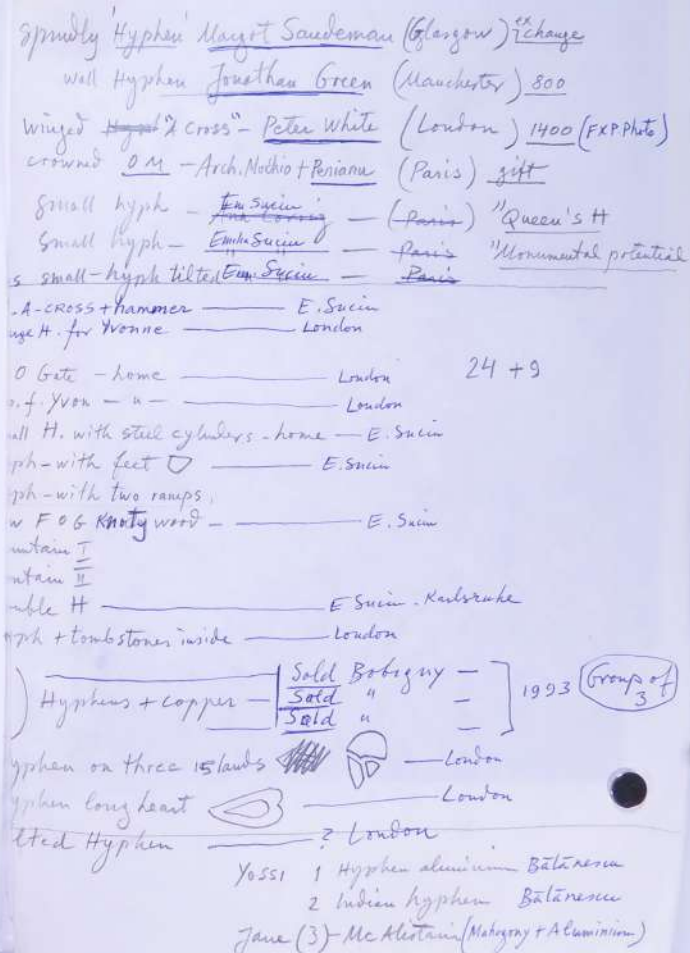 Spindly 'Hyphen' Margot Sandeman (Glasgow) exchange
wall Hyphen Jonathan Green (Manchester) 800
Winged "A Cross" - Peter White (London) 1400 (EXP. Photo)
crowned O M - Arch. + (Paris) gift
small hyph - Em Suciu — (Paris) "Queen's H
small hyph - Emilia Suciu — Paris "Monumental potential
s small-hyph tilted Em. Suciu — Paris
. A-CROSS + hammer — E. Suciu
uge H. for Yvonne — London
O Gate - home — London
24 + 9
o. f. Yvon — " — London
all H. with steel cylinders - home — E. Suciu
ph - with feet — E. Suciu
ph - with two ramps,
w F O G Knoty wood — E. Suciu
untain I
ntain II
uble H — E Suciu. Karlsruhe
yph + tombstones inside — London
) Hyphens + copper — Sold Bobigny —
Sold " —
Sold " —
] 1993 Group of 3
yphen on three islands — London
yphen long heart — London
lted Hyphen — ? London
Yossi 1 Hyphen aluminium Bălănescu
2 Indian hyphen Bălănescu
Jane (3) - Mc Alistair (Mahogony + Aluminium)